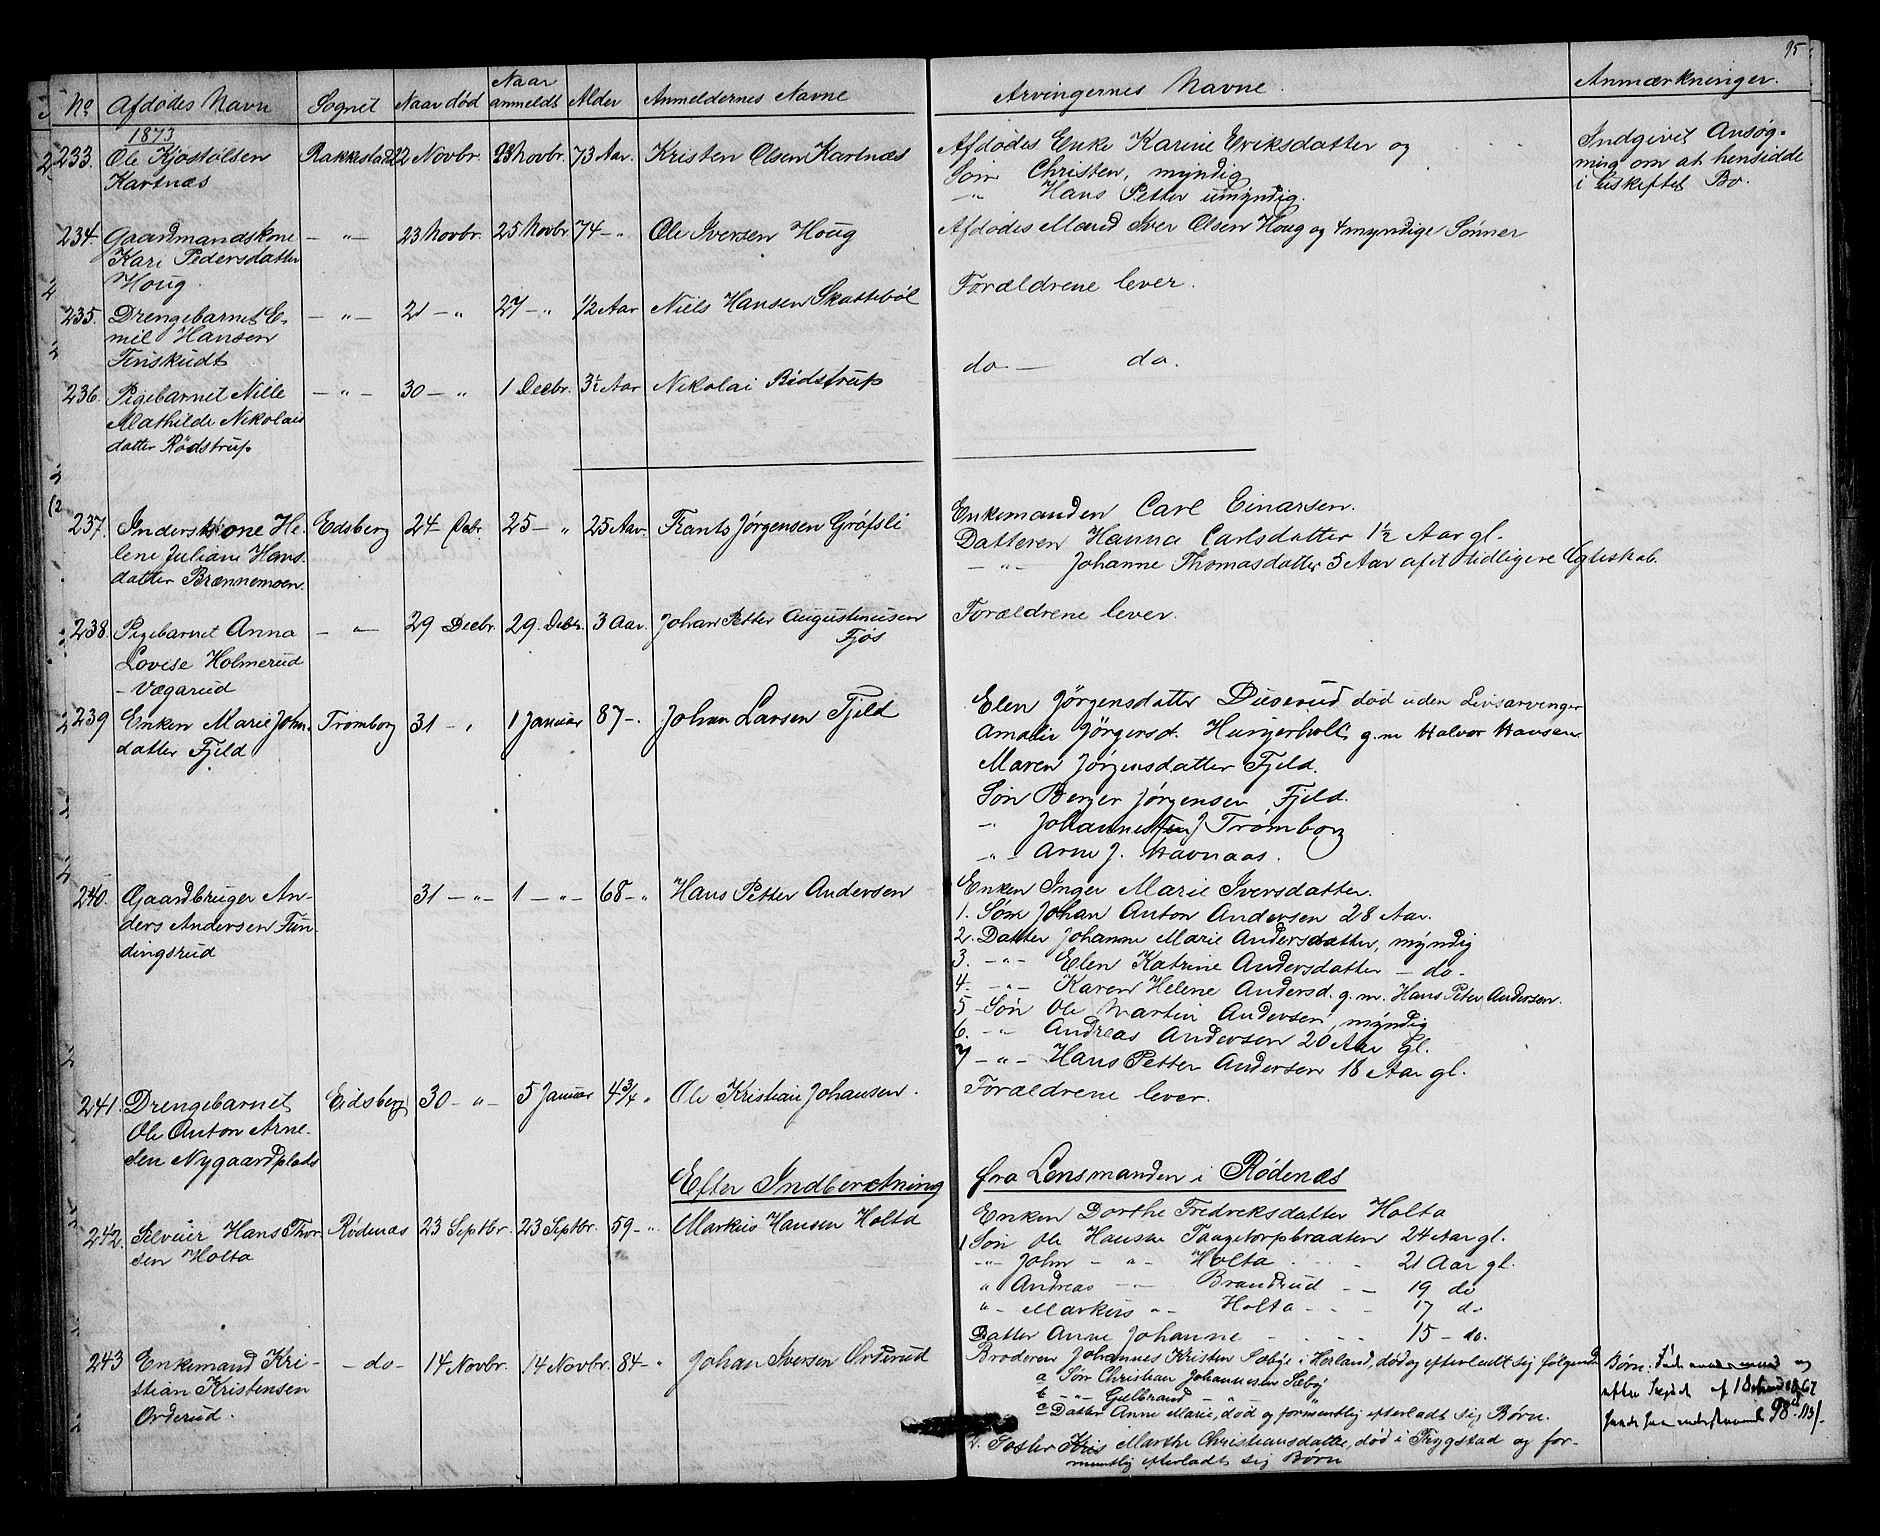 95
No. Afdødes Navn Sognet Naar død Naar anmeldt Alder Anmeldernes Navne Arvingernes Navne. Anmærkninger.
1873
233. Ole Kjøstolsen Rakkestad 22 Novbr. 23 Novbr. 73 Aar. Kristen Olsen Kartnæs Afdødes Enke Karine Eriksdatter og Indgivet Ansøg-
Kartnæs Søn Christen, myndig ning om at hensidde
-"- Hans Petter umyndig. i uskiftet Bo.
234. Gaardmandskone -"- 23 Novbr. 25 Novbr. 74 - " Ole Iversen Houg Afdødes Mand Iver Olsen Houg og 4 myndige Sønner
Kari Pedersdatter
Houg.
235. Drengebarnet E- -"- 21 - " 27 - " 1/2 Aar Niels Hansen Skattebøl Forældrene lever.
mil Hansen
Finskudt
236. Pigebarnet Nille -"- 30 - " 1 Decbr. 3½ Aar Nikolai Rödstrup do. - do.
Mathilde Nikolais
datter Rødstrup
237. Inderskone He- Edsberg 24 Debr. 25 - " 25 Aar Frants Jørgensen Gröfsli Enkemanden Carl Einarsen.
lene Juliane Hans- Datteren Hanna Carlsdatter 1½ Aar gl.
datter Brænnemoen. -"- Johanne Thomasdatter 5 Aar af et tidligere Egteskab.
238. Pigebarnet Anna - " - 29 Decbr. 29 Debr. 3 Aar. Johan Petter Augustinusen Forældrene lever.
Lovise Holmerud Fjøs
- Vægarud
239 Enken Marie John- Trømborg 31 - " 1 Januar 87 -. Johan Larsen Fjeld Elen Jörgensdatter Duserud død uden Livsarvinger
datter Fjeld Amalie Jörgensd. Hungerholt g.m Halvor Hansen.
Maren Jørgensdatter Fjeld.
Søn Berger Jørgensen Fjeld.
-" Johannes J Trømborg
-"- Arne J. Havnaas.
240. Gaardbruger An- 31 - " - 1 - " - 68 - " Hans Petter Andersen Enken Inger Marie Iversdatter.
ders Andersen Fun- 1. Søn Johan Anton Andersen 28 Aar.
dingsrud 2. Datter Johanne Marie Andersdatter, myndig
3. -"- Elen Katrine Andersdatter - do -
4. -"- Karen Helene Andersd. g. m. Hans Peter Andersen.
5 - Søn Ole Martin Andersen, myndig
6. -"- Andreas Andersen 20 Aar gl.
7 -"- Hans Petter Andersen 18 Aar gl.
241. Drengebarnet Eidsberg 30 - " - 5 Januar 4¾ " Ole Kristian Johansen. Forældrene lever.
Ole Anton Arne-
sen Nygaardplads
Efter Indberetning fra Lensmanden i Rødenæs
242. Selveier Hans Thor- Rødenæs 23 Septbr. 23 Septbr. 59 - " Markus Hansen Holta Enken Dorthe Fredreksdatter Holta
sen Holta 1 Søn Ole Hansen Taagetorpbraaten 24 Aar gl.
-"- John - " - Holta 21 Aar gl.
" Andreas - " - Brandsrud - - 19 do
"- Markus " - Holta - - 17 do
Datter Anne Johanne - - - 15 - do.
243 Enkemand Kri- - do - 14 Novbr. 14 Novbr. 84 - " Johan Iversen Orderud Broderen Johannes Kristen Sæbye i Herland, død og efterladt sig følgende Børn:
stian Kristensen a Søn Christian Johannesen Sæby efter
Orderud. b -"- Gulbrand - " -
c Datter Anne Marie, død og formentlig efterladt sig Børn. 98
2. Søster Marthe Christiansdatter, død i Trygstad og for-
mentlig efterladt sig Børn